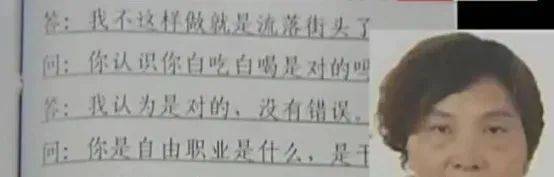 答：我不这样做就是流落街头了
问：你认识你白吃白喝是对的吗
答：我认为是对的，没有错误。
问：你是自由职业是什么，是干